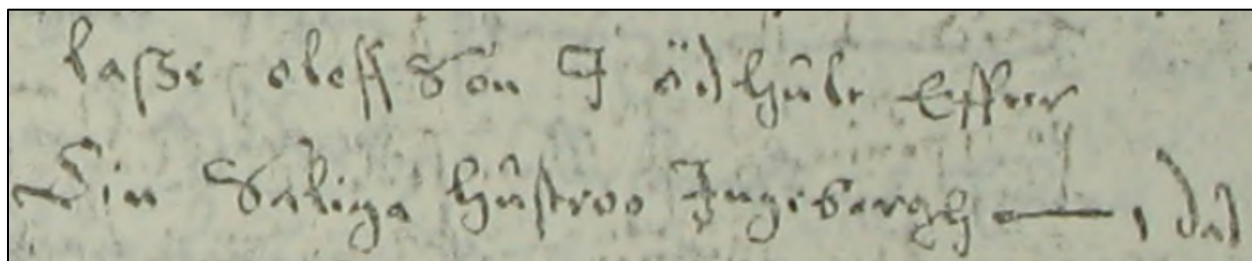 lasse oleff Son I ödhûlt Effter
Sin Saliga hûstroo Ingeborgh —— 1 dal